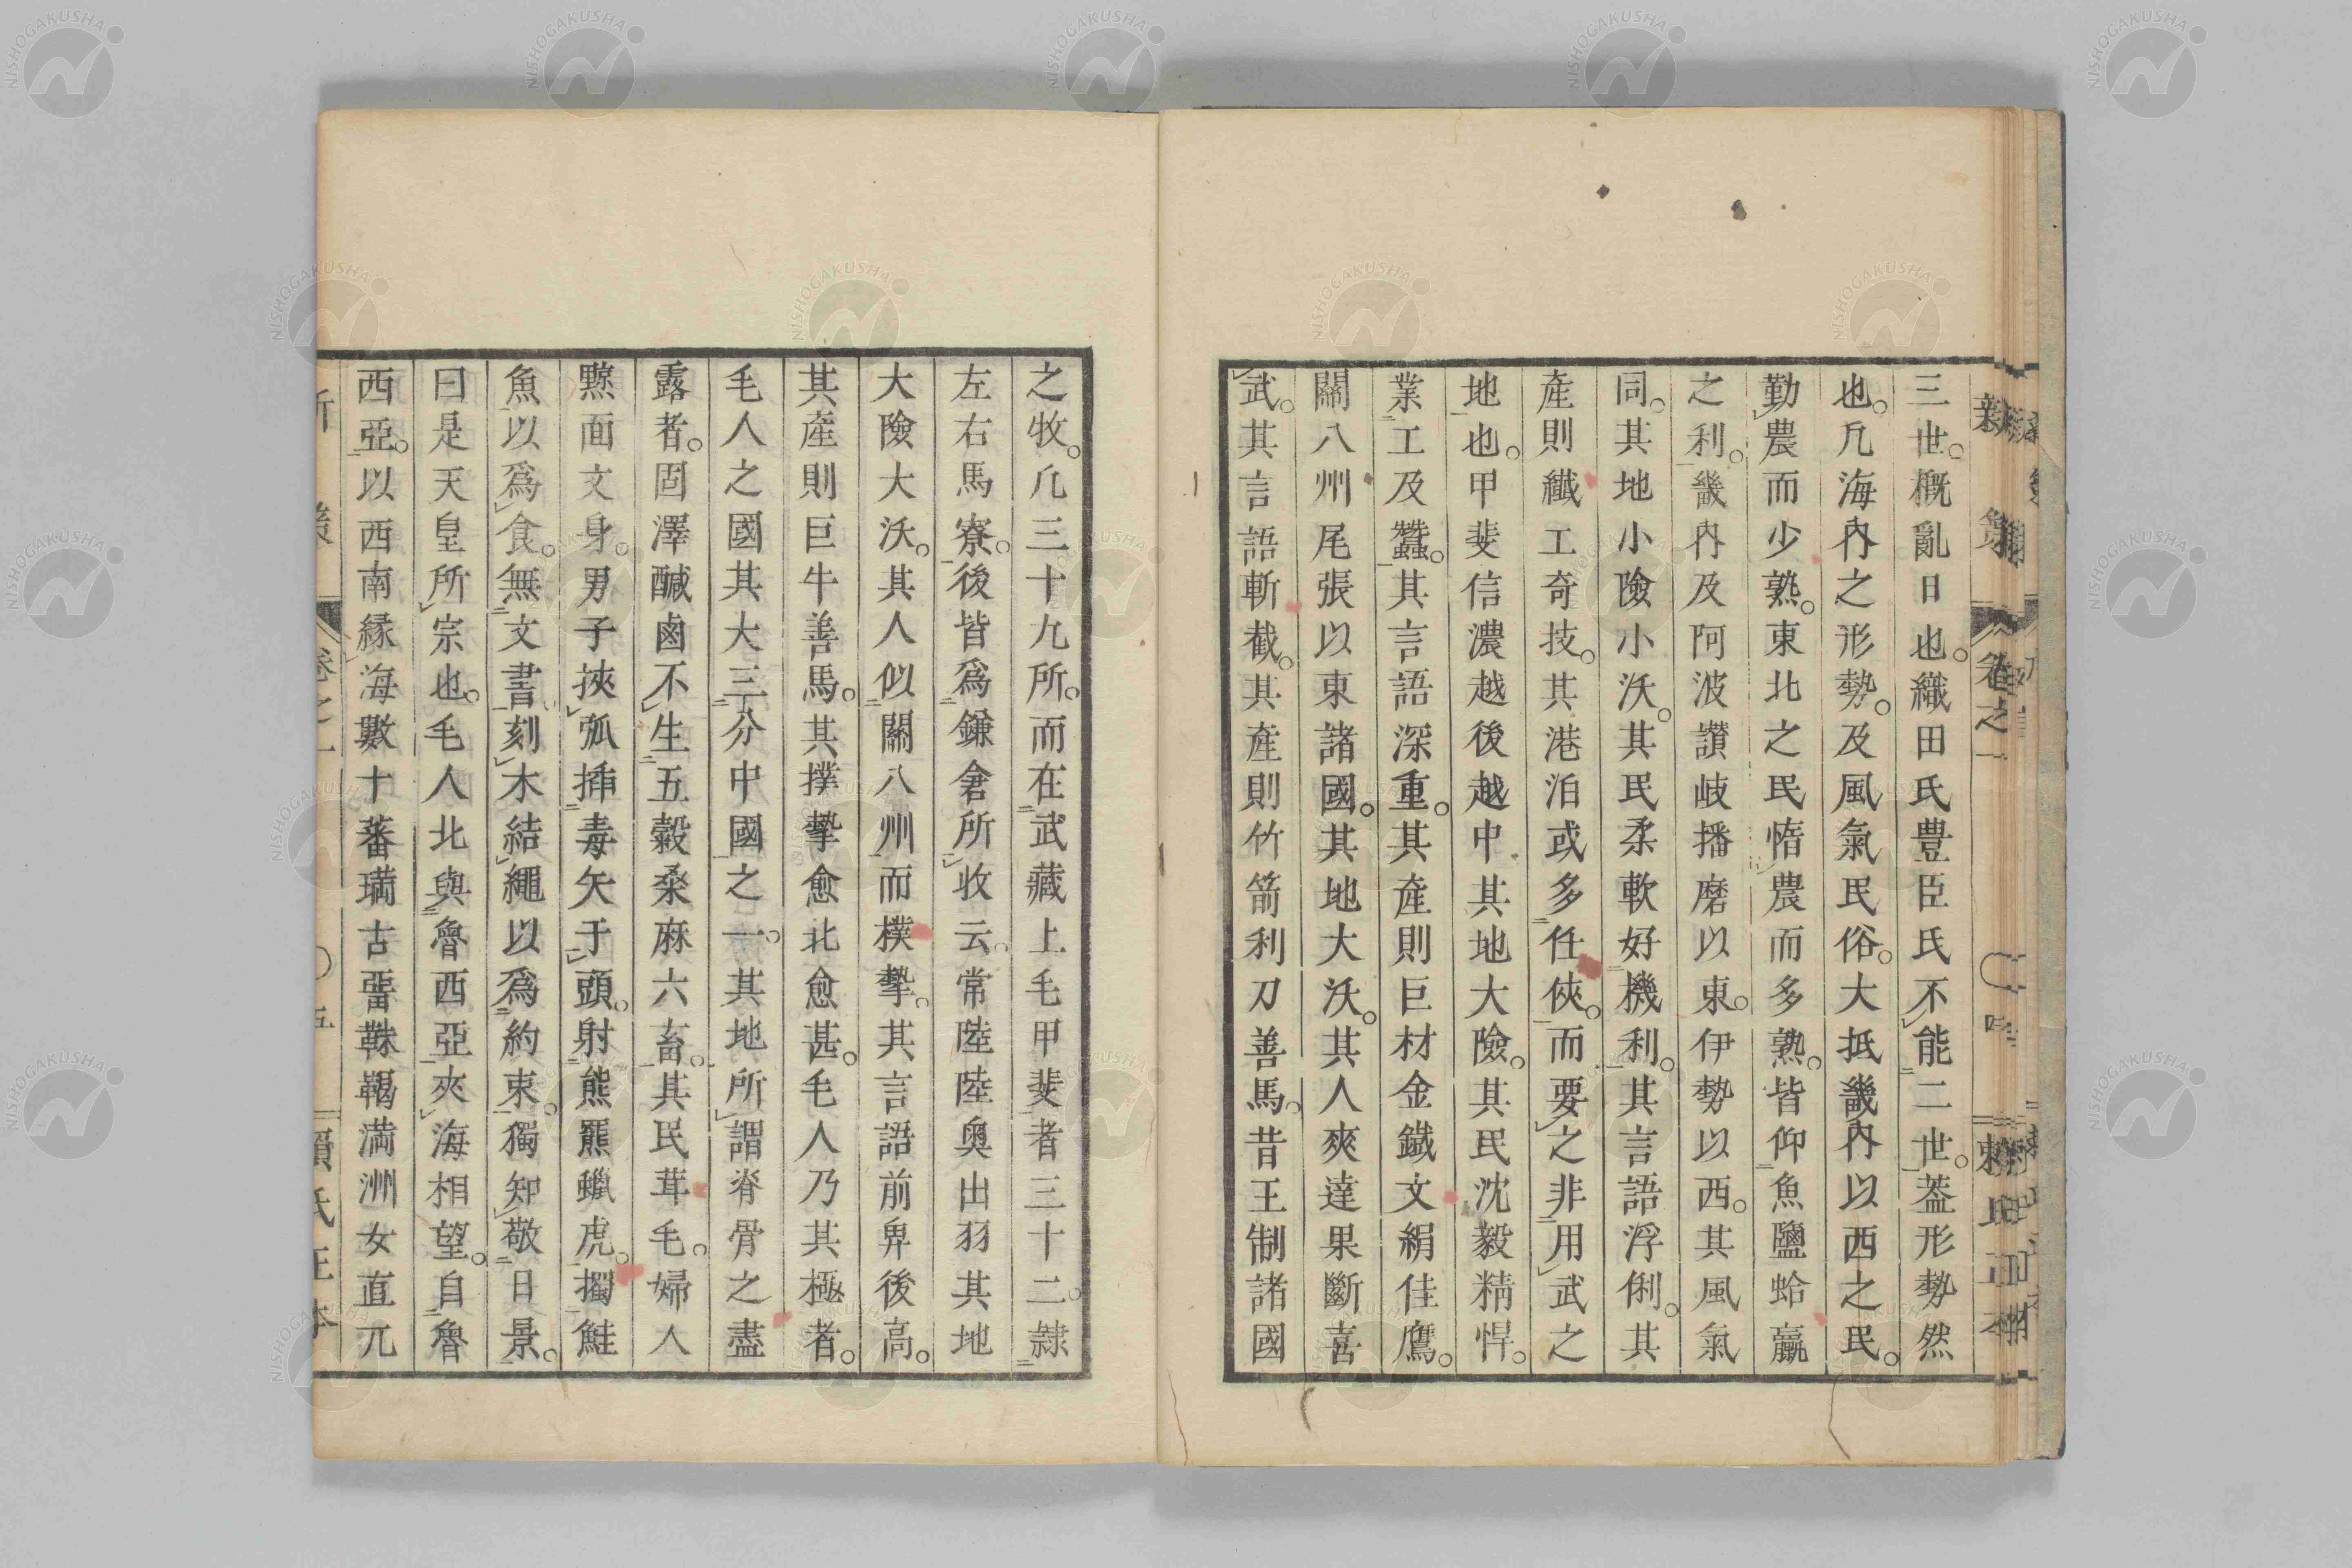 三世。概亂日也。織田氏豊臣氏不能二世。葢形勢然
也。凡海內之形勢。及風氣民俗。大抵畿內以西之民。
勤農而少熟。東北之民惰農而多熟。皆仰魚鹽蛤蠃
之利。畿內及阿波讚岐播磨以東。伊勢以西。其風氣
同。其地小險小沃。其民柔軟好機利。其言語浮俐。其
產則纎工奇技。其港泊或多任俠。而要之非用武之
地也。甲斐信濃越後越中其地大險。其民沈毅精悍。
業工及蠶。其言語深重。其產則巨材金鐵文絹佳鷹。
關八州尾張以東諸國。其地大沃。其人爽達果斷喜
武。其言語斬截。其產則竹箭利刀善馬。昔王制諸國
之牧。凡三十九所。而在武藏上毛甲斐者三十二。隷
左右馬寮。後皆爲鎌倉所收云。常陸陸奧出羽其地
大險大沃。其人似關八州而樸摯。其言語前卑後高。
其產則巨牛善馬。其撲摯愈北愈甚。毛人乃其極者。
毛人之國其大三分中國之一。其地所謂脊骨之盡
露者。固澤醎鹵不生五糓桒麻六畜。其民茸毛。婦人
黥面文身。男子挾弧揷毒矢于頭。射熊羆蠟虎。擉鮭
魚以爲食。無文書刻木結繩以爲約束。獨知敬日景。
曰是天皇所宗也。毛人北與魯西亞夾海相望。自魯
西亞。以西南緣海數十蕃瑞古䨱靺鞨滿洲女直兀
新策
卷之一